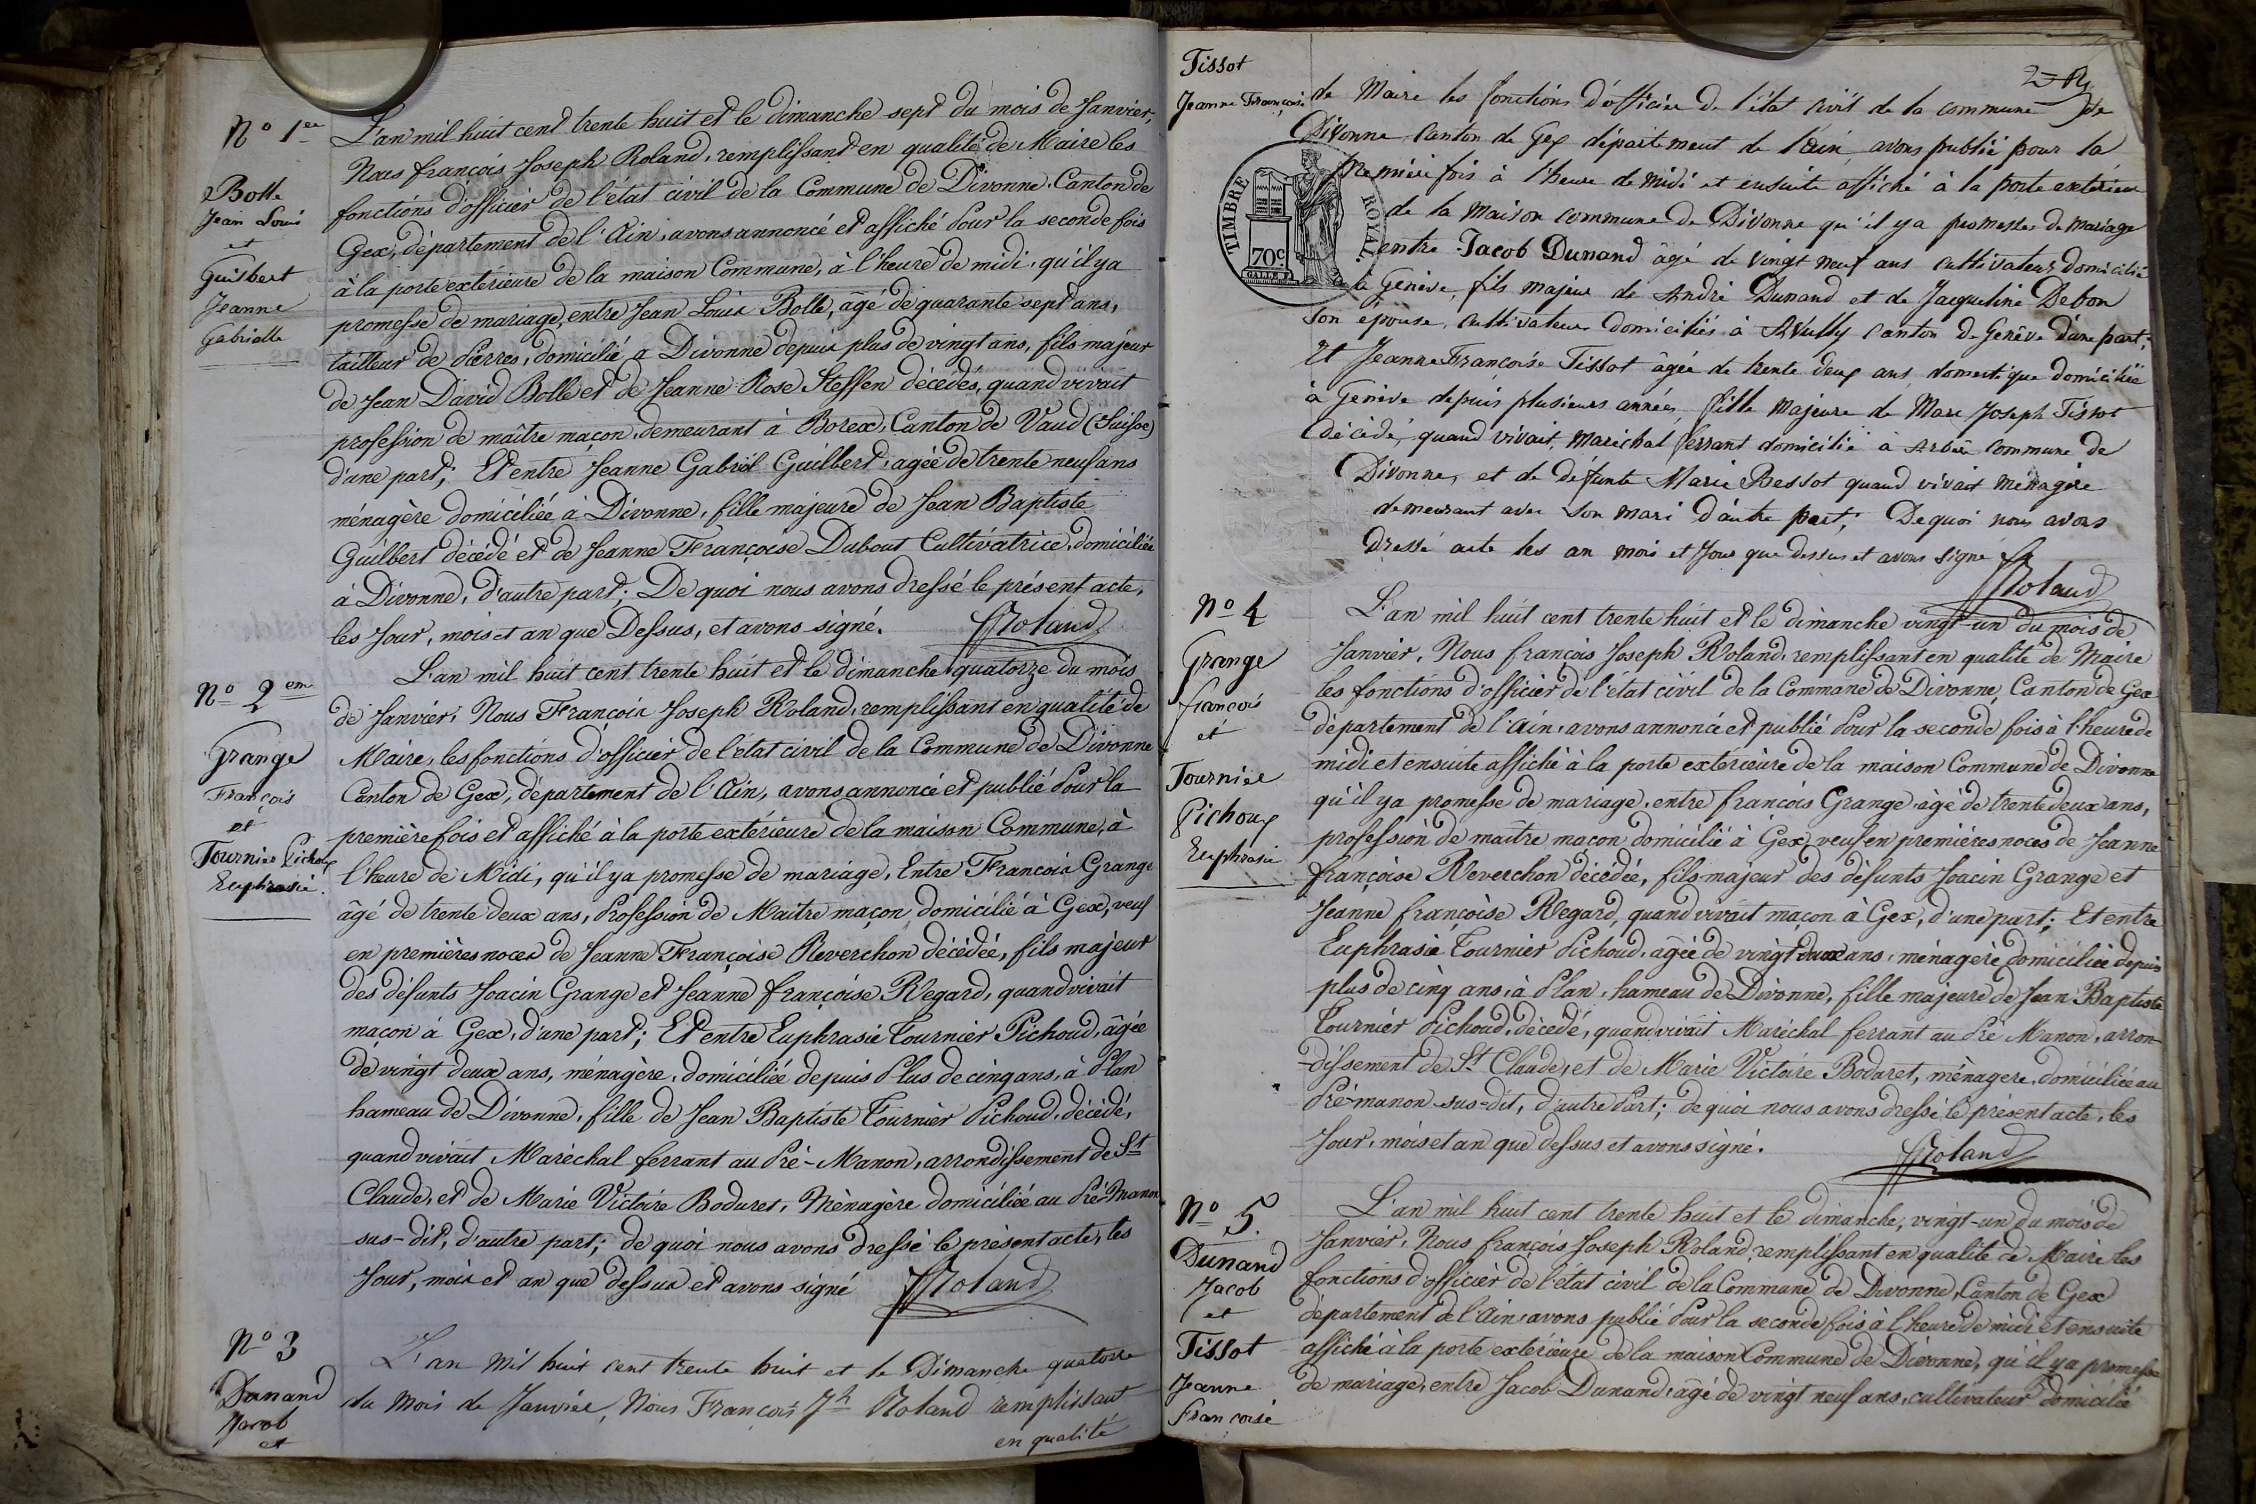 N° 1er
Bolle
Jean Louis
et
Guilbert
Jeanne
Gabrielle
L'an mil huit cent trente huit et le dimanche sept du mois de Janvier,
Nous françois Joseph Roland, remplissant en qualité de Maire les
fonctions d'officier de l'état civil de la Commune de Divonne, Canton de
Gex, département de l'Ain, avons annoncé et affiché Pour la seconde fois
à la porte extérieure de la maison Commune, à l'heure de midi, qu'il y a
promesse de mariage, entre Jean Louis Bolle, âgé de quarante sept ans,
tailleur de Pierres, domicilié a Divonne depuis plus de vingt ans, fils majeur
de Jean David Bolle et de Jeanne Rose Steffen décédés, quand vivait
profession de maître maçon, demeurant à Borex, Canton de Vaud (Suisse)
d'une part; Et entre Jeanne Gabriel Guilbert, agée de trente neuf ans
ménagère domiciliée à Divonne, fille majeure de Jean Baptiste
Guilbert décédé et de Jeanne Françoise Dubout Cultivatrice, domiciliée
à Divonne, d'autre part; De quoi nous avons dressé le présent acte,
les Jour, mois et an que Dessus, et avons signé.
Roland
N° 2em
Grange
François
et
Tournier Pichoux
Euphrasie
L'an mil huit cent trente huit et le dimanche quatorze du mois
de Janvier, Nous François Joseph Roland, remplissant en qualité de
Maire, les fonctions d'officier de l'état civil de la Commune de Divonne
Canton de Gex, département de l'Ain, avons annoncé et publié Pour la
première fois et affiché à la porte extérieure de la maison Commune, à
l'heure de Midi, qu'il y a promesse de mariage, Entre François Grange
âgé de trente deux ans, Profession de Maitre maçon, domicilié à Gex, veuf
en premières noces de Jeanne Françoise Reverchon décédée, fils majeur
des défunts Joacin Grange et Jeanne françoise Regard, quand vivait
maçon à Gex, d'une part; Et entre Euphrasie Tournier Pichoud, âgée
de vingt deux ans, ménagère, domiciliée depuis Plus de cinq ans, à Plan
hameau de Divonne, fille de Jean Baptiste Tournier Pichoud, décédé,
quand vivait Maréchal ferrant au Pré-Manon, arrondissement de St
Claude, et de Marie Victoire Boduret, Ménagère domiciliée au Pré-Manon
sus-dit, d'autre part; de quoi nous avons dressé le présent acte, les
Jour, mois et an que dessus et avons signé
Roland
N° 3
Dunand
Jacob
et
L'an mil huit cent trente huit et le Dimanche quatorze
du mois de Janvier, Nous François Jh Roland remplissant
en qualité
Tissot
Jeanne Françoise
de Maire les fonctions d'officier de l'état civil de la commune de
Divonne Canton de Gex département de l'Ain, avons publié pour la
Première fois à l'heure de midi et ensuite affiché à la porte extérieure
de la maison commune de Divonne qu'il y a promesses de mariage
entre Jacob Dunand âgé de vingt neuf ans cultivateur domicilié
à Genève, fils majeur de André Dunand et de Jacqueline Debon
Son épouse, cultivateurs domiciliés à Avully canton de Genève d'une part;
Et Jeanne Françoise Tissot âgée de trente deux ans domestique domiciliée
à Genève depuis plusieurs années fille majeure de Marc Joseph Tissot
décédé, quand vivait maréchal ferrant domicilié à Arbère commune de
Divonne, et de défunte Marie Bessot quand vivait ménagère
demeurant avec Son mari d'autre part; De quoi nous avons
dressé acte les an mois et Jour que dessus et avons signé
Roland
TIMBRE ROYAL
70c
N° 4
Grange
françois
et
Tournier
Pichoux
Euphrasie
L'an mil huit cent trente huit et le dimanche vingt-un du mois de
Janvier, Nous françois Joseph Roland, remplissant en qualité de Maire
les fonctions d'officier de l'état civil de la Commune de Divonne, Canton de Gex
département de l'Ain, avons annoncé et publié Pour la seconde fois à l'heure de
midi et ensuite affiché à la porte extérieure de la maison Commune de Divonne
qu'il y a promesse de mariage, entre françois Grange âgé de trente deux ans,
profession de maître maçon domicilié à Gex, veuf en premières noces de Jeanne
françoise Reverchon décédée, fils majeur des défunts Joacin Grange et
Jeanne françoise Regard, quand vivait maçon à Gex, d'une part; Et entre
Euphrasie Tournier Pichoud, âgée de vingt deux ans, ménagère domiciliée depuis
plus de cinq ans, à Plan, hameau de Divonne, fille majeure de Jean Baptiste
Tournier Pichoud, décédé, quand vivait Maréchal ferrant au Pré Manon, arron-
-dissement de St Claude, et de Marie Victoire Boduret, ménagere, domiciliée au
Pré-manon sus-dit, d'autre Part; de quoi nous avons dressé le présent acte, les
Jour, mois et an que dessus et avons signé.
Roland
N° 5.
Dunand
Jacob
et
Tissot
Jeanne
françoise
L'an mil huit cent trente huit et le dimanche, vingt-un du mois de
Janvier, Nous françois Joseph Roland, remplissant en qualité de Maire les
fonctions d'officier de l'état civil de la Commune de Divonne, Canton de Gex
département de l'Ain, avons publié Pour la seconde fois à l'heure de midi et ensuite
affiché à la porte extérieure de la maison Commune de Divonne, qu'il y a promesse
de mariage, entre Jacob Dunand, âgé de vingt neuf ans, cultivateur domicilié